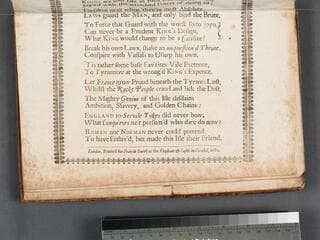 LAWS guard the MAN, and only bind the Brute.
To Force that Guard with the worst foe to joyn,
Can never be a Prudent KING's Design,
What KING would change to be a Catiline?
Break his own Laws, stake an unquestion'd Throne,
Conspire with Vassals to Usurp his own.
'Tis rather some base Favorites Vile Pretence,
To Tyrannize at the wrong'd KING's Expence.
Let France grow Proud beneath the Tyrants Lust,
Whilst the Rackt People crawl and lick the Dust.
The Mighty Genius of this Isle disdains
Ambition, Slavery, and Golden Chains:
ENGLAND to Servile Yokes did never bow,
What Conquerors ne'r presum'd who dare do now?
ROMAN nor NORMAN never could pretend
To have Enslav'd, but made this Isle their Friend.
London, Printed for Francis Smith at the Elephant & Castle in Cornhil,